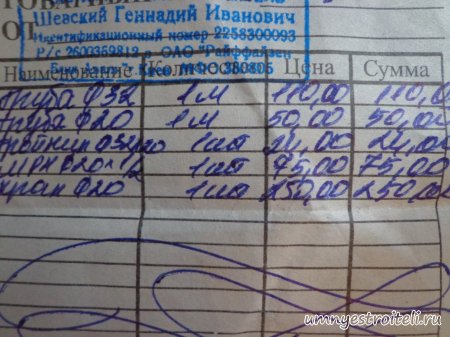 ТОВАРНЫЙ
Шевский Геннадий Иванович
ОТ
Идентификационный номер 2258300093
Р/с 2600359819 в ОАО "Райффайзен
Банк МФО 380805
Наименование Количество Цена Сумма
труба Ф32 1м 110,00 110,0
труба Ф20 1м 50,00 50,00
тройник Ф32/20 1шт 24,00 24,00
МРН Ф20х1/2 1шт 75,00 75,00
кран Ф20 1шт 250,00 250,00
umnyestroiteli.ru